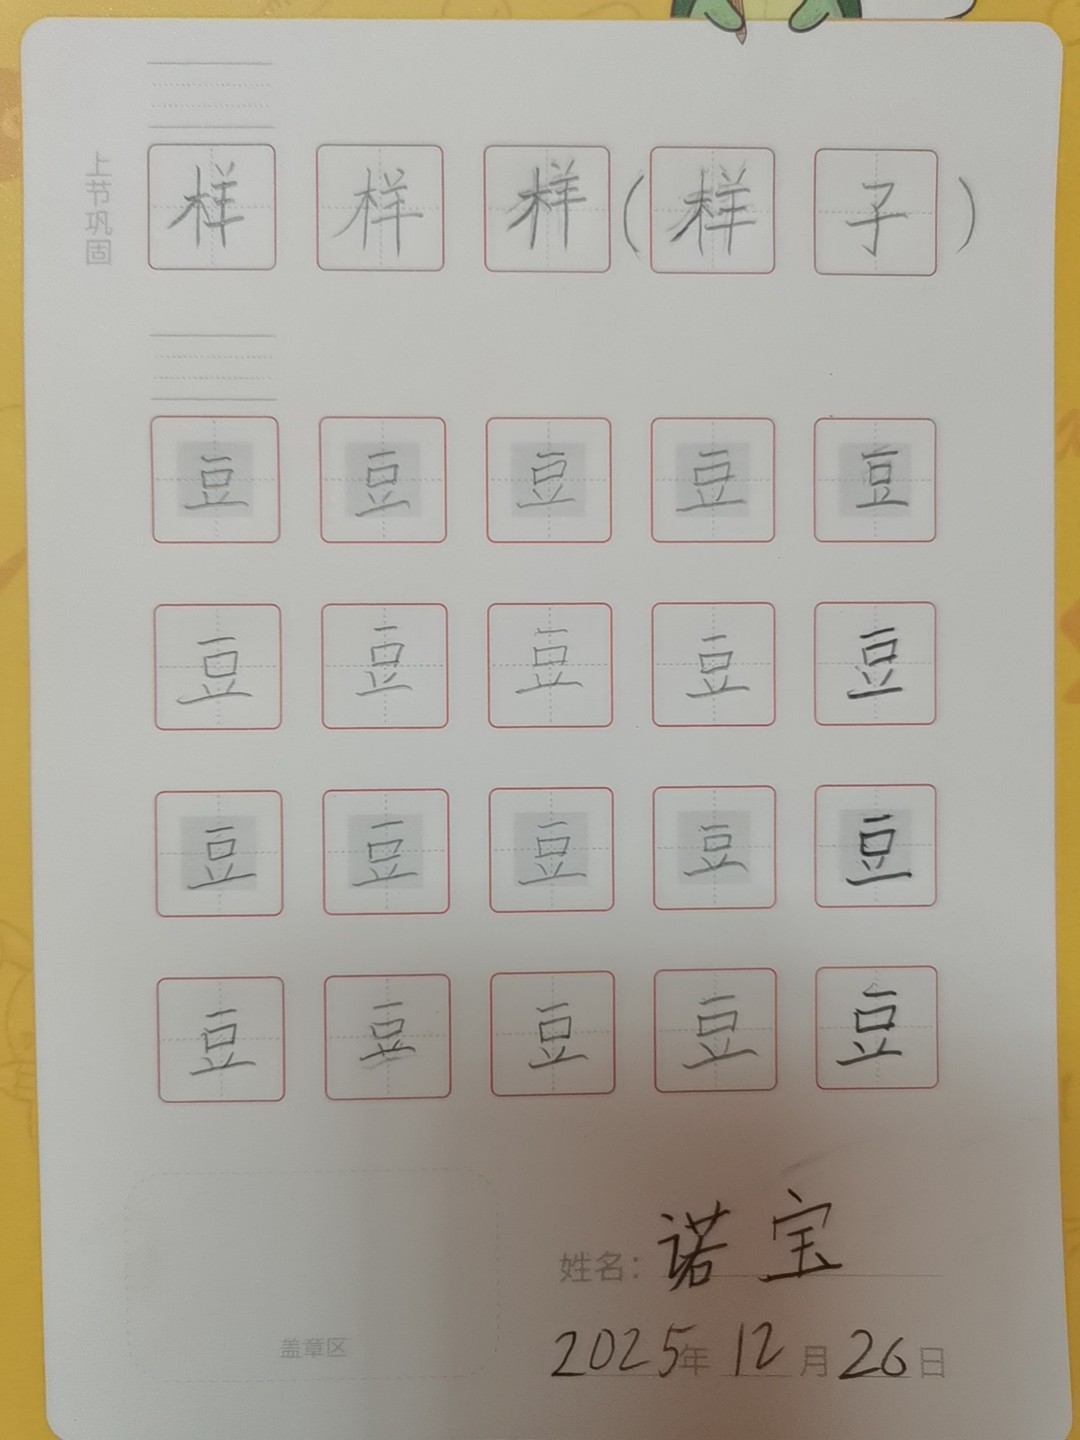 上节巩固
样 样 样 (样 子)
豆 豆 豆 豆 豆
豆 豆 豆 豆 豆
豆 豆 豆 豆 豆
豆 豆 豆 豆 豆
姓名：诺宝
盖章区
2025年12月26日